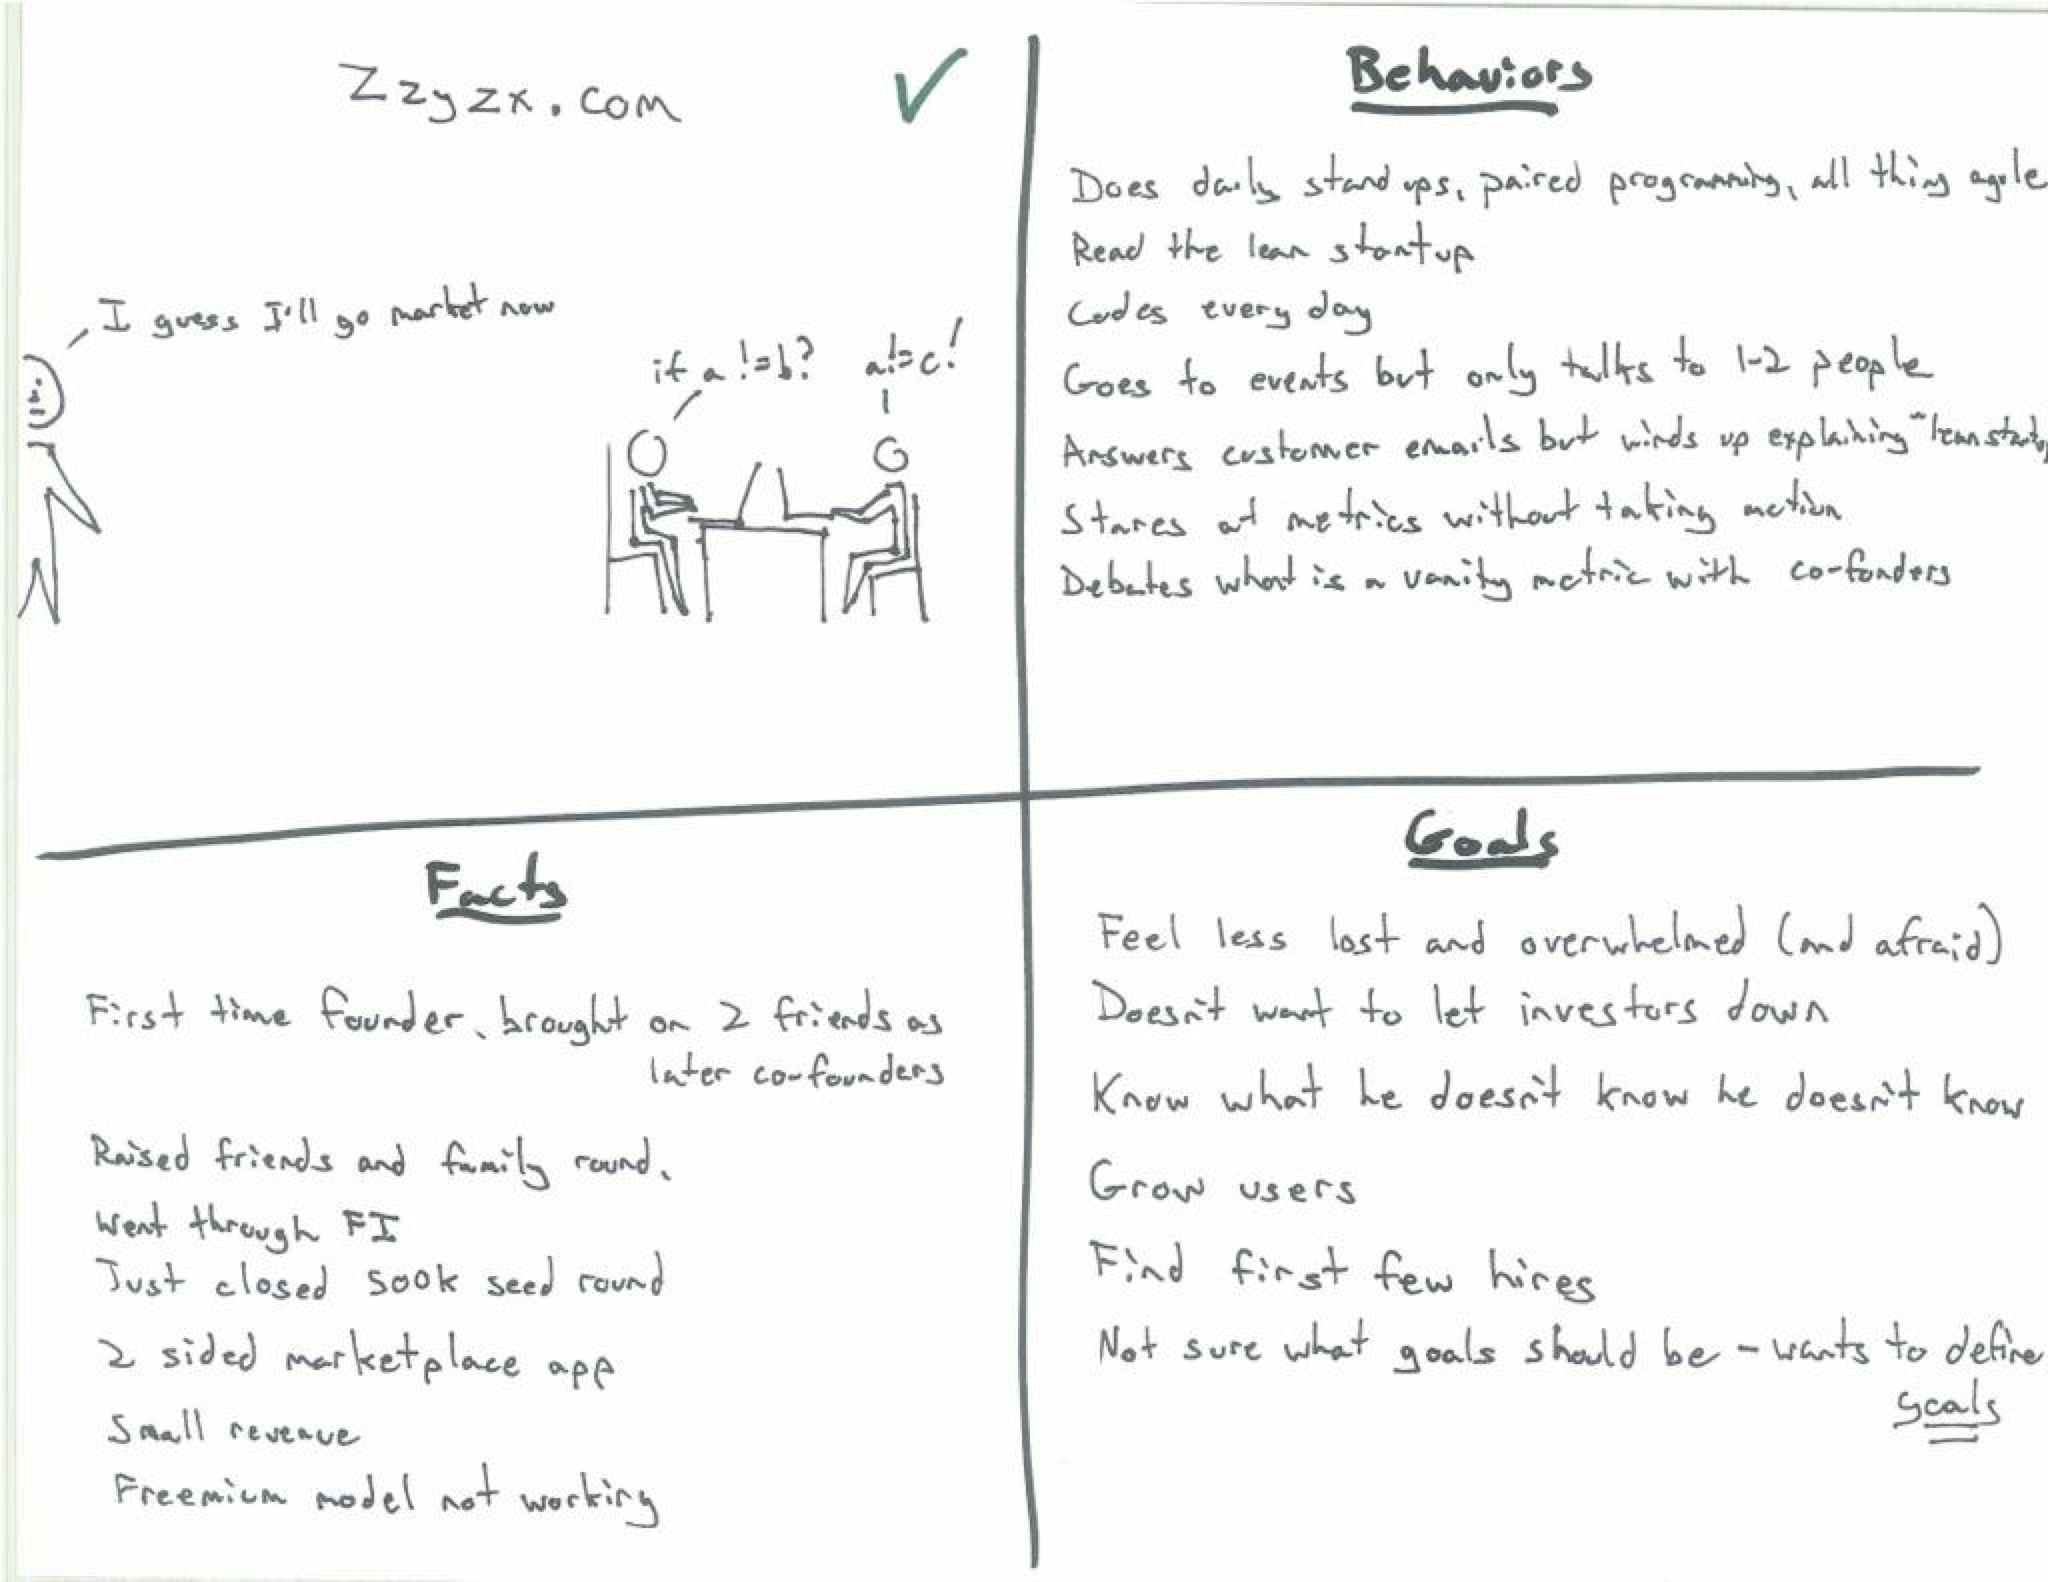 Zzyzx.com
I guess I'll go market now
if a != b?
a != c!
Behaviors
Does daily stand ups, paired programming, all thing agile
Read the lean startup
Codes every day
Goes to events but only talks to 1-2 people
Answers customer emails but winds up explaining "lean startup
Stares at metrics without taking action
Debates what is a vanity metric with co-fonders
Facts
First time founder, brought on 2 friends as
later co-founders
Raised friends and family round.
Went through FI
Just closed 500k seed round
2 sided marketplace app
Small revenue
Freemium model not working
Goals
Feel less lost and overwhelmed (and afraid)
Doesn't want to let investors down
Know what he doesn't know he doesn't know
Grow users
Find first few hires
Not sure what goals should be - wants to define
goals